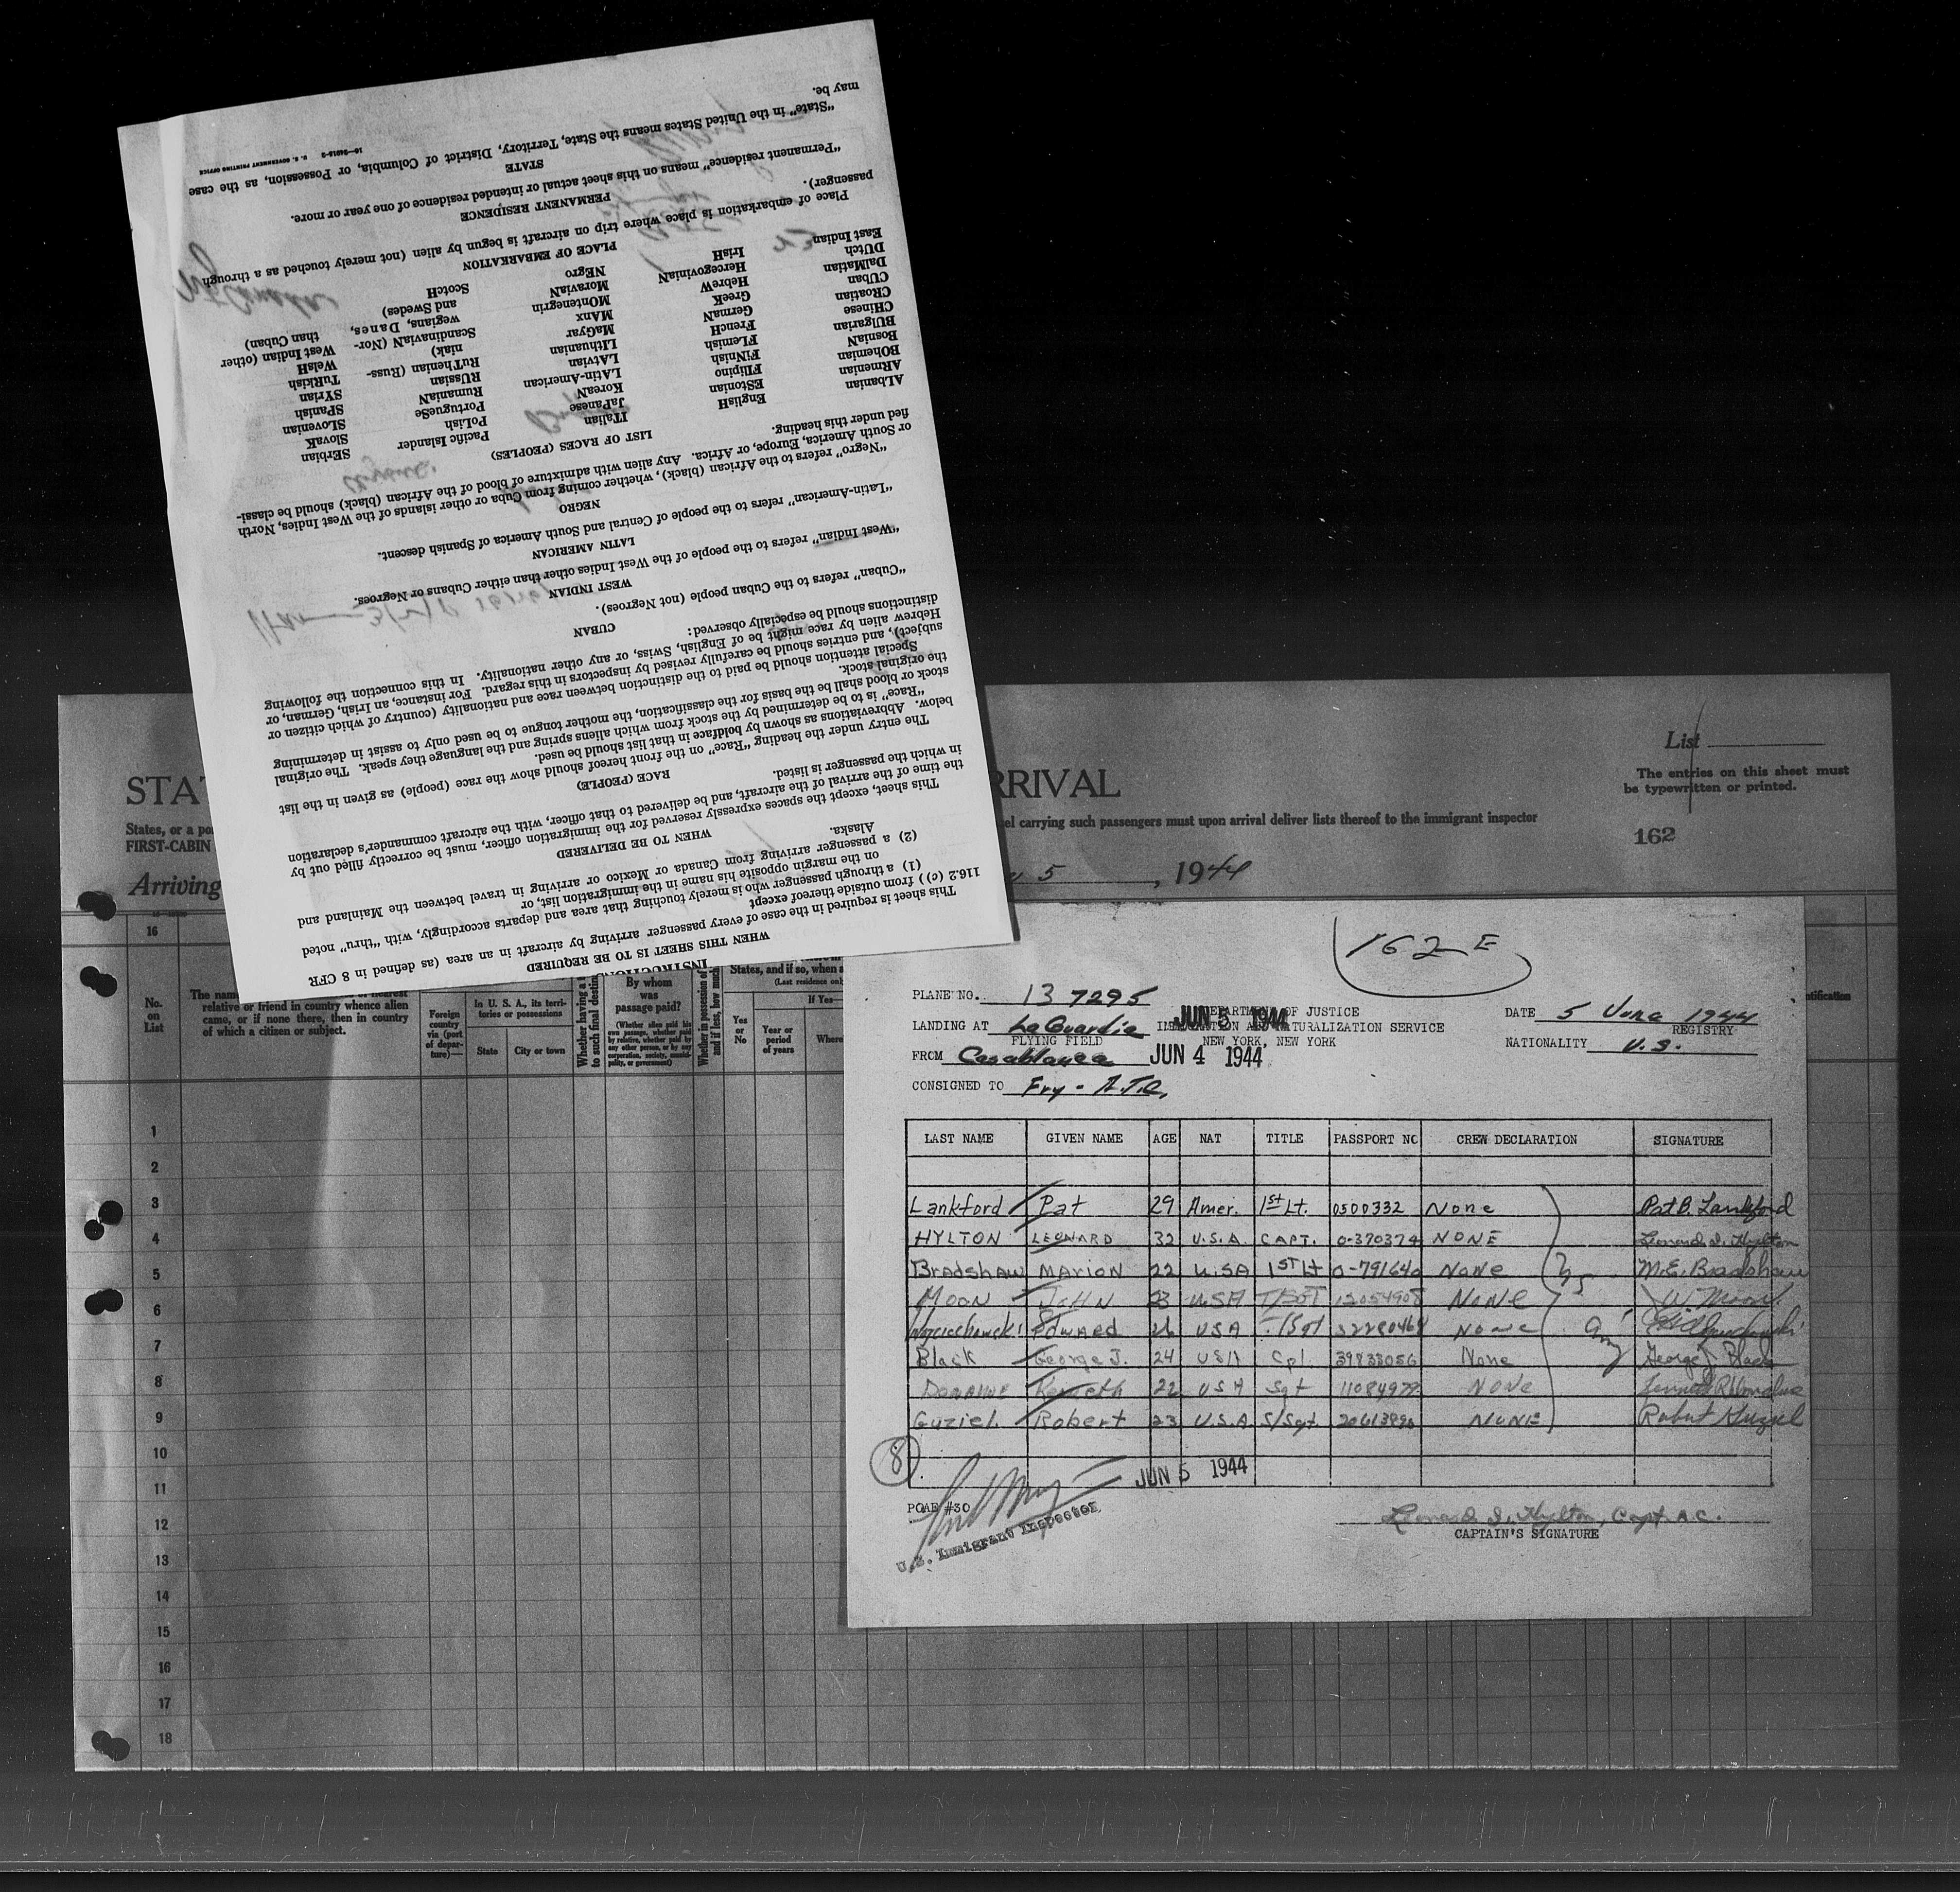 INSTRUCTIONS
WHEN THIS SHEET IS TO BE REQUIRED
This sheet is required in the case of every passenger arriving by aircraft in an area (as defined in 8 CFR
116.2 (c)) from outside thereof except
(1) a through passenger who is merely touching that area and departs accordingly, with "thru" noted
on the margin opposite his name in the immigration list, or
(2) a passenger arriving from Canada or Mexico or arriving in travel between the Mainland and
Alaska.
WHEN TO BE DELIVERED
This sheet, except the spaces expressly reserved for the immigration officer, must be correctly filled out by
the time of the arrival of the aircraft, and be delivered to that officer, with the aircraft commander's declaration
in which the passenger is listed.
RACE (PEOPLE)
The entry under the heading "Race" on the front hereof should show the race (people) as given in the list
below. Abbreviations as shown by boldface in that list should be used.
"Race" is to be determined by the stock from which aliens spring and the language they speak. The original
stock or blood shall be the basis for the classification, the mother tongue to be used only to assist in determining
the original stock.
Special attention should be paid to the distinction between race and nationality (country of which citizen or
subject), and entries should be carefully revised by inspectors in this regard. For instance, an Irish, German, or
Hebrew alien by race might be of English, Swiss, or any other nationality. In this connection the following
distinctions should be especially observed:
CUBAN
"Cuban" refers to the Cuban people (not Negroes).
WEST INDIAN
"West Indian" refers to the people of the West Indies other than either Cubans or Negroes.
LATIN AMERICAN
"Latin-American" refers to the people of Central and South America of Spanish descent.
NEGRO
"Negro" refers to the African (black), whether coming from Cuba or other islands of the West Indies, North
or South America, Europe, or Africa. Any alien with admixture of blood of the African (black) should be classi-
fied under this heading.
LIST OF RACES (PEOPLES)
ALbanian EngliSH ITaliaN Pacific Islander SErbian
ARmenian EStonian JaPanese PoLish SlovaK
BOhemian FIlipino KoreaN PortugueSe SLOvenian
BosniaN FiNnish LAtin-American RumaniaN SPanish
BUlgarian FLemish LAtvian RUssian SYrian
CHinese FrencH LIthuanian RuThenian (Russ- TuRkish
CRoatian GermaN MaGyar niak) WelsH
CUban GreeK MAnx ScandinaviaN (Nor- West Indian (other
DalMatian HebreW MOntenegrin wegians, Danes, than Cuban)
DUtch HercegoviniaN MoraviaN and Swedes)
East Indian IrisH NEgro ScotcH
PLACE OF EMBARKATION
Place of embarkation is place where trip on aircraft is begun by alien (not merely touched as a through
passenger).
PERMANENT RESIDENCE
"Permanent residence" means on this sheet actual or intended residence of one year or more.
STATE
"State" in the United States means the State, Territory, District of Columbia, or Possession, as the case
may be.
U. S. GOVERNMENT PRINTING OFFICE
STAT
RRIVAL
List
The entries on this sheet must
be typewritten or printed.
162
States, or a po
el carrying such passengers must upon arrival deliver lists thereof to the immigrant inspector
FIRST-CABIN
Arriving
5, 1944
16
No.
on
List
The name
relative or friend in country whence alien
came, or if none there, then in country
of which a citizen or subject.
Foreign
country
via (port
of depar-
ture)—
In U. S. A., its terri-
tories or possessions
State City or town
Whether having a
to such final destin
By whom
was
passage paid?
(Whether alien paid his
own passage, whether paid
by relative, whether paid by
any other person, or by any
corporation, society, munici-
pality, or government)
Whether in possession of
and if less, how much
States, and if so, when a
(Last residence only
If Yes—
Yes
or
No
Year or
period
of years
Where
ntification
1
2
3
4
5
6
7
8
9
10
11
12
13
14
15
16
17
18
162 E
PLANE NO. 137295
JUN 5 1944
DEPARTMENT OF JUSTICE
DATE 5 June 1944
LANDING AT LaGuardia
FLYING FIELD
IMMIGRATION AND NATURALIZATION SERVICE
NEW YORK, NEW YORK
REGISTRY
NATIONALITY U.S.
FROM Casablanca JUN 4 1944
CONSIGNED TO Fry - A.T.C.
LAST NAME GIVEN NAME AGE NAT TITLE PASSPORT NO CREW DECLARATION SIGNATURE
Lankford Pat 29 Amer. 1st Lt. 0500332 None Pat B. Lankford
HYLTON LEONARD 32 U.S.A. CAPT. 0-370374 NONE Leonard I. Hylton
Bradshaw MARION 22 U.SA 1ST Lt 0-791640 NONE M.E. Bradshaw
MOON JOHN 23 USA T/SGT 12054908 NONE W. Moon
Wojciechowski EDWARD 26 USA T/Sgt 32280468 None
Black George J. 24 USA Cpl. 39833056 None George J. Black
Kenneth 22 USA Sgt 11084979 NONE
Guziel Robert 23 U.S.A. S/Sgt. 20613990 NONE Robert Guziel
8
JUN 5 1944
POAE #30
U.S. Immigrant Inspector
Leonard I. Hylton, Capt. A.C.
CAPTAIN'S SIGNATURE